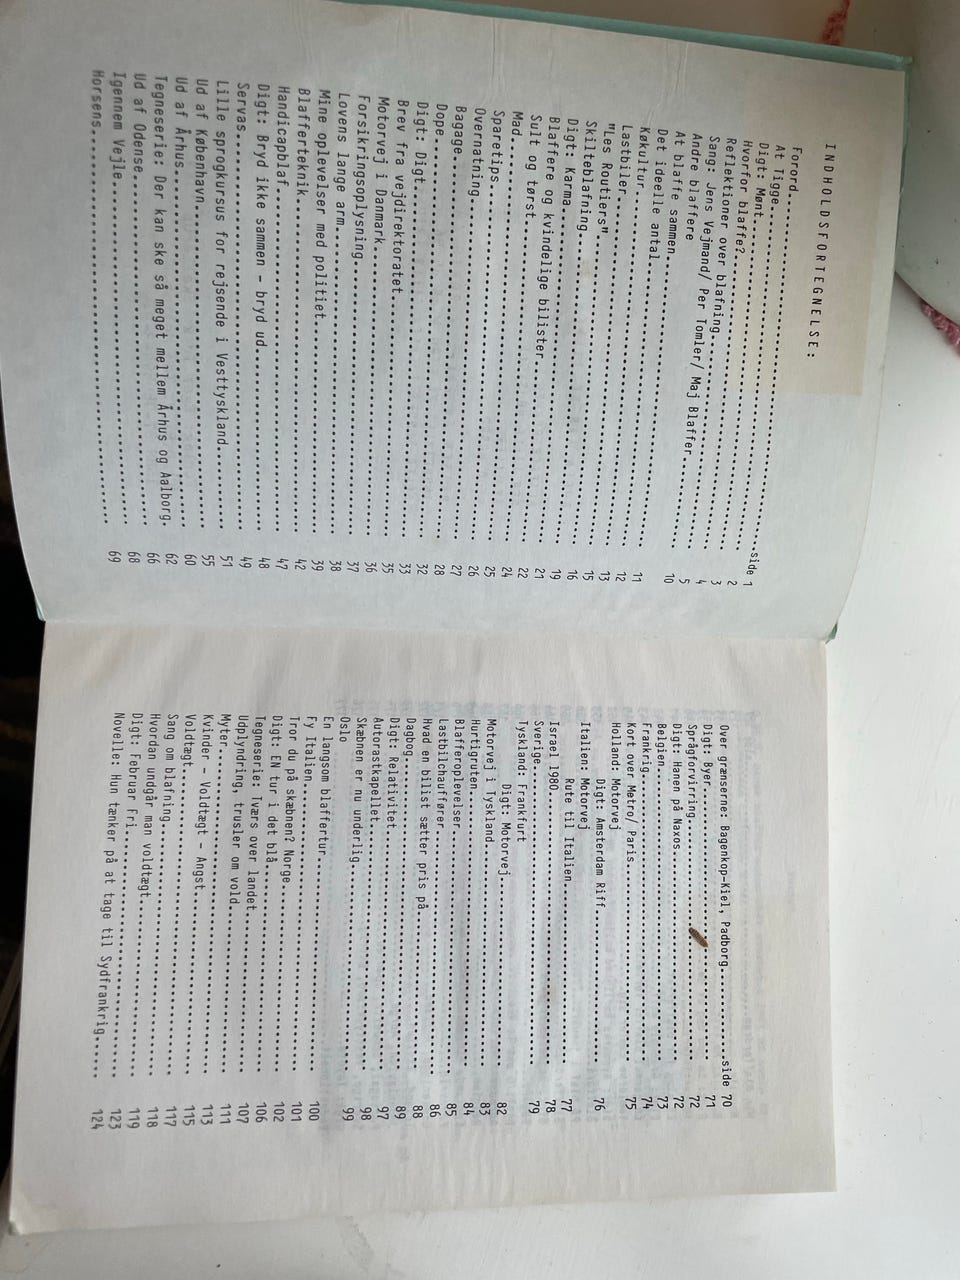 INDHOLDSFORTEGNELSE:
Forord..........side 1
At Tigge.......... 2
Digt: Mønt.......... 3
Hvorfor blaffe?.......... 4
Reflektioner over blafning.......... 5
Sang: Jens Vejmand/ Per Tomler/ Maj Blaffer.......... 10
Andre blaffere
At blaffe sammen.......... 11
Det i ideelle antal.......... 12
Køkultur.......... 13
Lastbiler.......... 15
"Les Routiers".......... 16
Skilteblafning.......... 19
Digt: Karma.......... 21
Blaffere og kvindelige bilister.......... 22
Sult og tørst.......... 24
Mad.......... 25
Sparetips.......... 26
Overnatning.......... 27
Bagage.......... 28
Dope.......... 32
Digt: Digt.......... 33
Brev fra vejdirektoratet 35
Motorvej i Danmark.......... 36
Forsikringsoplysning.......... 37
Lovens lange arm.......... 38
Mine oplevelser med politiet.......... 39
Blafferteknik.......... 42
Handicapblaf.......... 47
Digt: Bryd ikke sammen - bryd ud.......... 48
Servas.......... 49
Lille sprogkursus for rejsende i Vesttyskland.......... 51
Ud af København.......... 55
Ud af Århus.......... 60
Tegneserie: Der kan ske så meget mellem Århus og Aalborg. 62
Ud af Odense.......... 66
Igennem Vejle.......... 68
Horsens.......... 69
Over grænserne: Bagenkop-Kiel, Padborg..........side 70
Digt: Byer.......... 71
Språgforvirring.......... 72
Digt: Hanen på Naxos.......... 72
Belgien.......... 73
Frankrig.......... 74
Kort over Metro/ Paris.......... 75
Holland: Motorvej
Digt: Amsterdam Riff.......... 76
Italien: Motorvej
Rute til Italien.......... 77
Israel 1980.......... 78
Sverige.......... 79
Tyskland: Frankfurt
Digt: Motorvej.......... 82
Motorvej i Tyskland.......... 83
Hurtigruten.......... 84
Blafferoplevelser.......... 85
Lastbilchauffører.......... 86
Hvad en bilist sætter pris på.......... 88
Dagbog.......... 89
Digt: Relativitet.......... 97
Autorastkapellet.......... 98
Skæbnen er nu underlig.......... 99
Oslo
En langsom blaffertur.......... 100
Fy Italien.......... 101
Tror du på skæbnen? Norge.......... 102
Digt: EN tur i det blå.......... 106
Tegneserie: Iværs over landet.......... 107
Udplyndring, trusler om vold.......... 111
Myter.......... 113
Kvinder - Voldtægt - Angst.......... 115
Voldtægt.......... 117
Sang om blafning.......... 118
Hvordan undgår man voldtægt.......... 119
Digt: Februar Fri.......... 123
Novelle: Hun tænker på at tage til Sydfrankrig..... 124